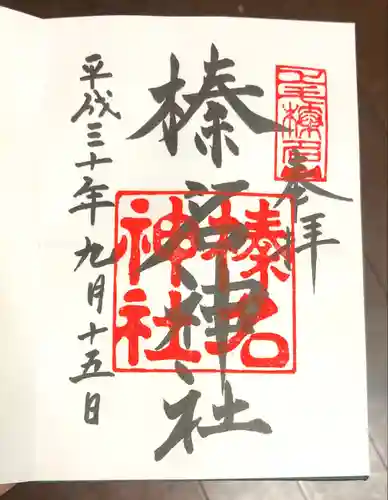 奉拝
榛名神社
榛名神社
平成三十年九月十五日